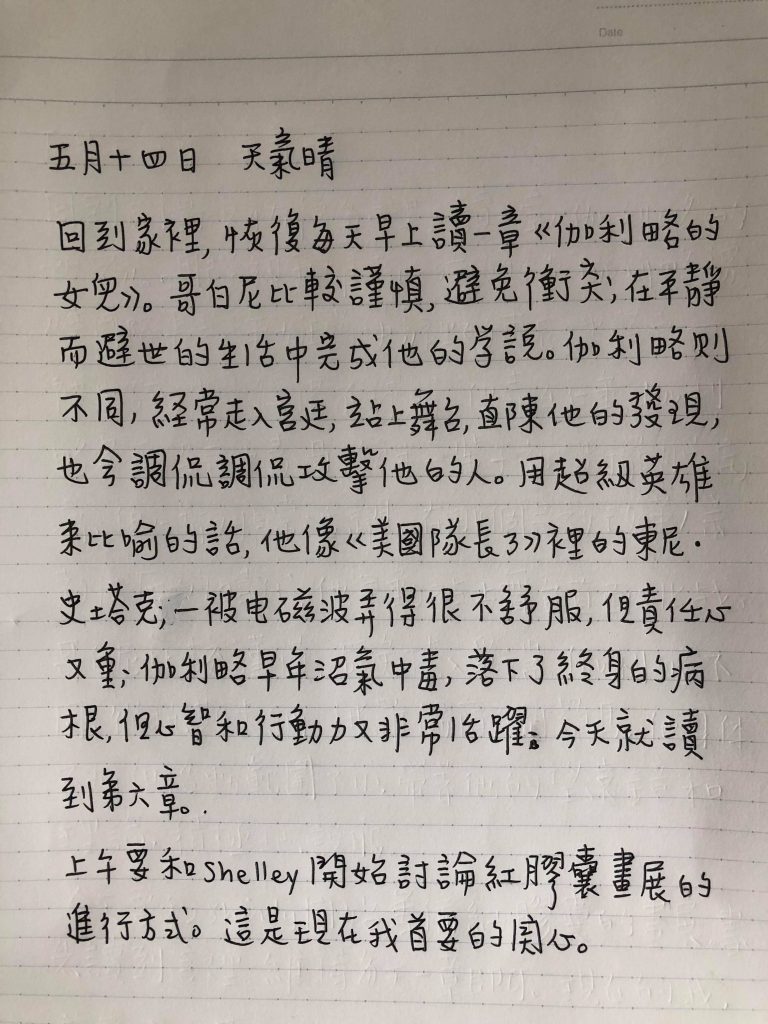 Date
五月十四日 天氣晴
回到家裡,恢復每天早上讀一章《伽利略的
女兒》。哥白尼比較謹慎,避免衝突;在平靜
而避世的生活中完成他的学説。伽利略则
不同,經常走入宫廷,站上舞台,直陳他的發現,
也会調侃調侃攻擊他的人。用超級英雄
来比喻的話,他像《美國隊長3》裡的東尼·
史塔克;一被电磁波弄得很不舒服,但責任心
又重;伽利略早年沼氣中毒,落下了終身的病
根,但心智和行動力又非常活躍。今天就讀
到第六章。
上午要和Shelley開始討論紅膠囊畫展的
進行方式。這是現在我首要的関心。